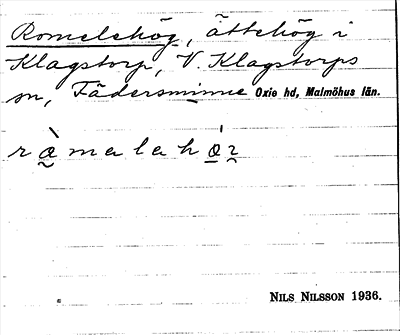 Romelehög, ättehög i
Klagstorp, V. Klagstorps
sn, Fädersminne Oxie hd, Malmöhus län.
NILS NILSSON 1936.